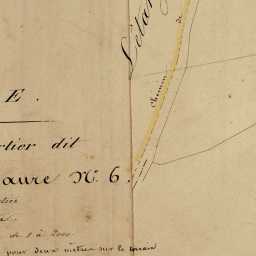 E.
rtier dit
aure N.º 6.
de 1 à 2000
pour deux mètres sur le terrain
L'étan
Chemin de